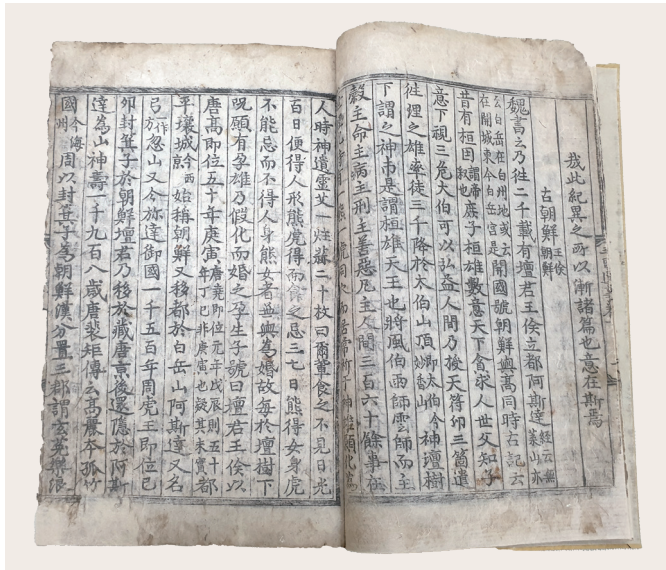 哉此紀異之所以漸諸篇也意在斯焉
古朝鮮王倹朝鮮
魏書云乃徃二千載有壇君王倹立都阿斯達經云無葉山亦
云白岳在白州地或云在開城東今白岳宮是開國號朝鮮與高同時古記云
昔有桓因謂帝釋也庶子桓雄數意天下貪求人世父知子
意下視三危大伯可以弘益人間乃授天符印三箇遣
徃理之雄率徒三千降於太伯山頂即太伯今妙香山神壇樹
下謂之神市是謂桓雄天王也將風伯雨師雲師而主
糓主命主病主刑主善惡凡主人間三百六十餘事在
人時神遺靈艾一炷蒜二十枚曰爾軰食之不見日光
百日便得人形熊虎得而食之忌三七日熊得女身虎
不能忌而不得人身熊女者無與為婚故每於壇樹下
呪願有孕雄乃假化而婚之孕生子號曰壇君王倹以
唐高即位五十年庚寅唐堯即位元年戊辰則五十年丁巳非庚寅也疑其未實都
平壤城今西京始稱朝鮮又移都於白岳山阿斯達又名
弓一作方忽山又今弥達御國一千五百年周虎王即位己
卯封箕子於朝鮮壇君乃移於藏唐京後還隱於阿斯
達為山神壽一千九百八歳唐裵矩傳云高麗本孤竹
國今海州周以封箕子為朝鮮漢分置三郡謂玄菟樂浪